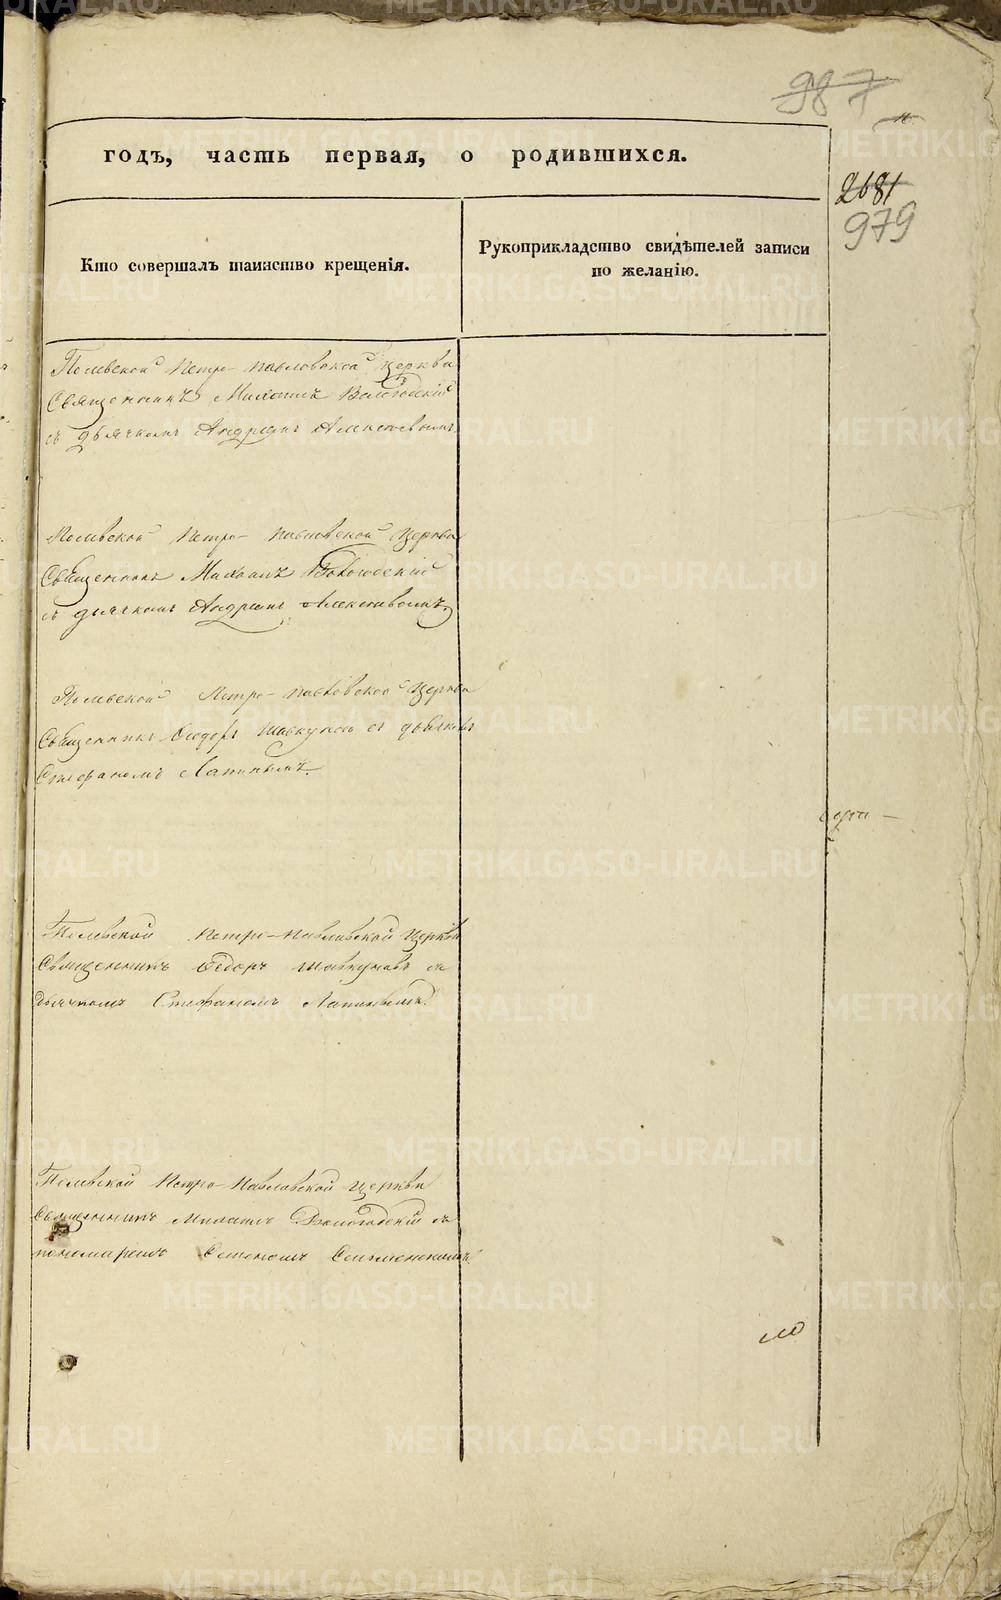 987
годъ, часть первая, о родившихся.
2681
979
Кто совершалъ таинство крещенія.
Рукоприкладство свидѣтелей записи
по желанію.
Полевской Петро-Павловской церкви
Священникъ Михаилъ Вологодскій
съ дьячкомъ Андреемъ Алексѣевымъ
Полевской Петро-Павловской церкви
Священникъ Михаилъ Вологодскій
съ дьячкомъ Андреемъ Алексѣевымъ
Полевской Петро-Павловской церкви
Священникъ Ѳедоръ Шавкуновъ съ дьячкомъ
Стефаномъ Лапинымъ.
Полевской Петро-Павловской церкви
Священникъ Ѳедоръ Шавкуновъ съ
дьячкомъ Стефаномъ Лапинымъ.
Полевской Петро-Павловской церкви
Священникъ Михаилъ Вологодскій съ
пономаремъ
METRIKI.GASO-URAL.RU